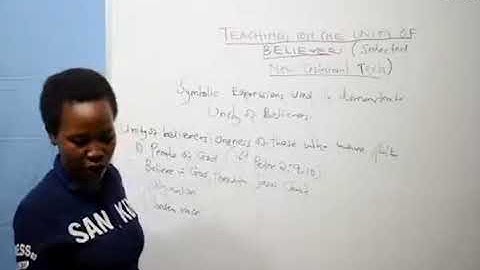 TEACHINGS ON THE UNITY OF
BELIEVERS (Selected
New Testament Texts)
Symbolic Expressions Used to demonstrate
Unity of Believers
Unity of believers: Oneness of those who have faith
People of God (1st Peter 2:9-10)
Believe in God through Jesus Christ
SAN
NESS